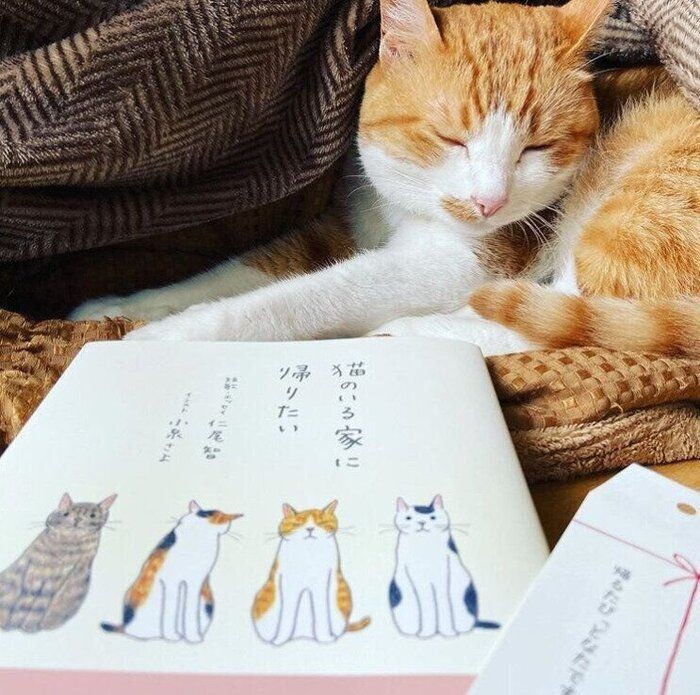 猫のいる家に
帰りたい
短歌・エッセイ 仁尾智
イラスト 小泉さよ